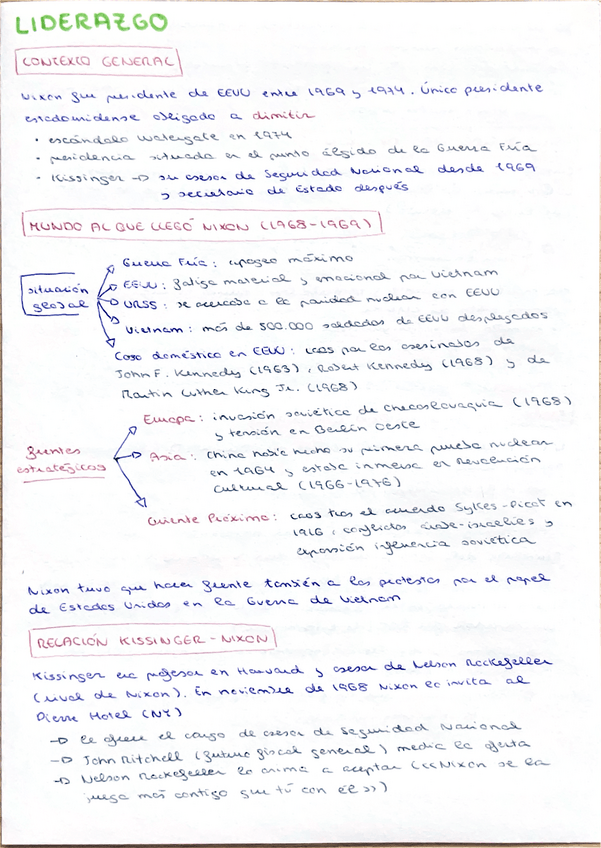 LIDERAZGO
CONTEXTO GENERAL
Nixon fue presidente de EEUU entre 1969 y 1974. Único presidente
estadounidense obligado a dimitir
· escándalo Watergate en 1974
· presidencia situada en el punto álgido de la Guerra Fría
· Kissinger → su asesor de Seguridad Nacional desde 1969
y secretario de Estado después
MUNDO AL QUE LLEGÓ NIXON (1968-1969)
situación
global
Guerra Fría: apogeo máximo
EEUU: fatiga material y emocional por Vietnam
URSS: se acercaba a la paridad nuclear con EEUU
Vietnam: más de 500.000 soldados de EEUU desplegados
Caso doméstico en EEUU: caos por los asesinatos de
John F. Kennedy (1963), Robert Kennedy (1968) y de
Martin Luther King Jr. (1968)
frentes
estratégicos
Europa: invasión soviética de Checoslovaquia (1968)
y tensión en Berlín Oeste
Asia: China había hecho su primera prueba nuclear
en 1964 y estaba inmersa en Revolución
Cultural (1966-1976)
Oriente Próximo: caos tras el acuerdo Sykes-Picot en
1916, conflictos árabe-israelíes y
expansión influencia soviética
Nixon tuvo que hacer frente también a las protestas por el papel
de Estados Unidos en la Guerra de Vietnam
RELACIÓN KISSINGER-NIXON
Kissinger era profesor en Harvard y asesor de Nelson Rockefeller
(rival de Nixon). En noviembre de 1968 Nixon lo invita al
Pierre Hotel (NY)
→ le ofrece el cargo de asesor de Seguridad Nacional
→ John Mitchell (futuro fiscal general) media la oferta
→ Nelson Rockefeller lo anima a aceptar (<<Nixon se la
juega más contigo que tú con él>>)